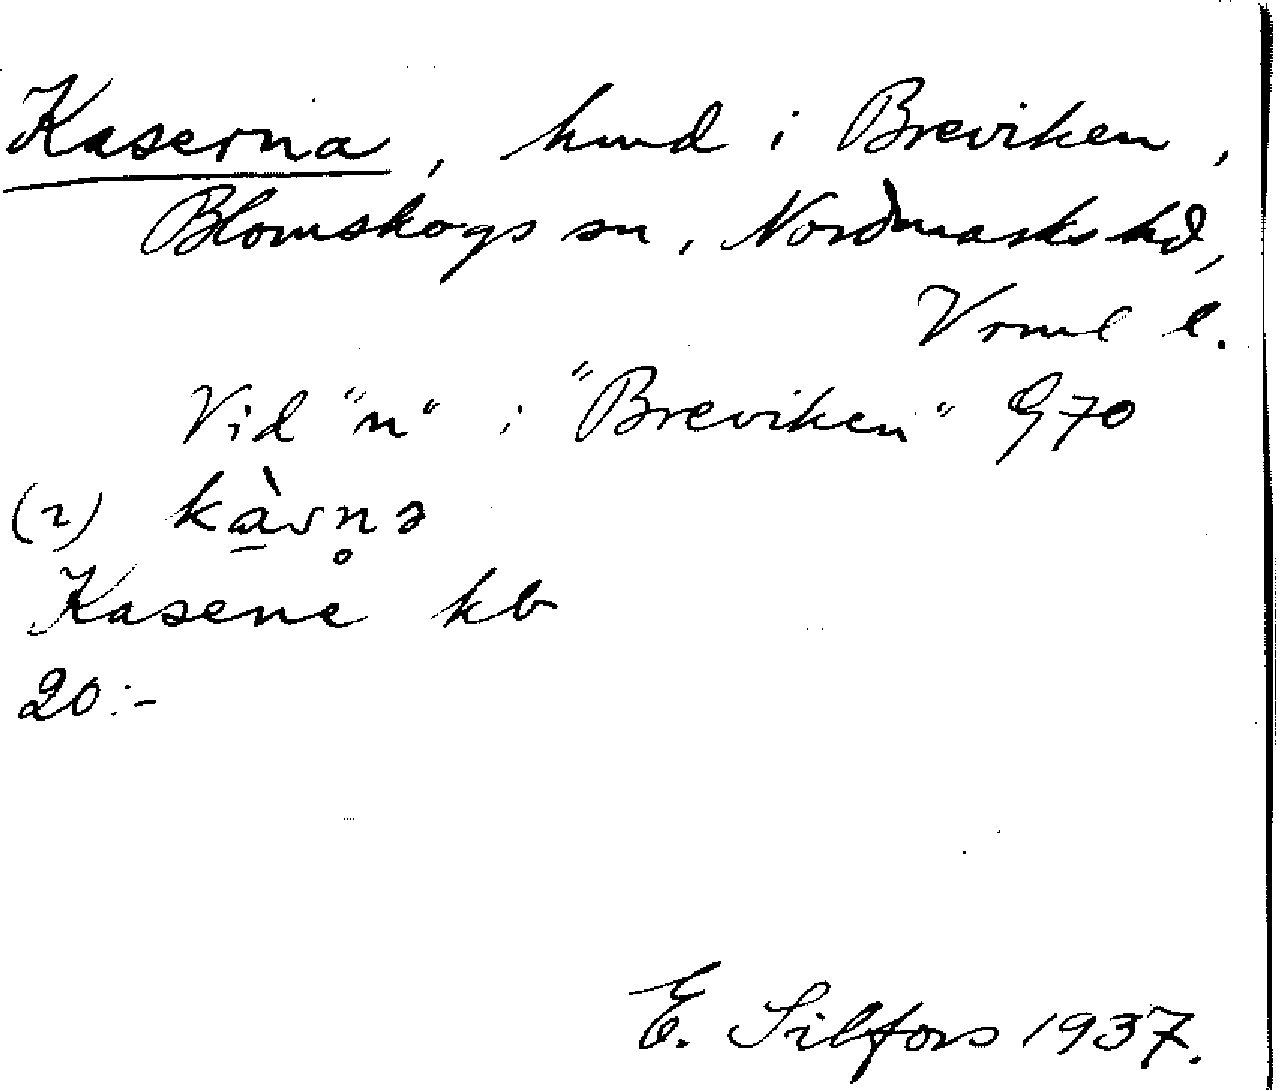 Kaserna, hmd i Breviken,
Blomskogs sn, Nordmarks hd,
Vrml l.
Vid "n" i "Breviken" G70
(2) kàsn̥ə
Kasene kb
20:-
E. Silfors 1937.